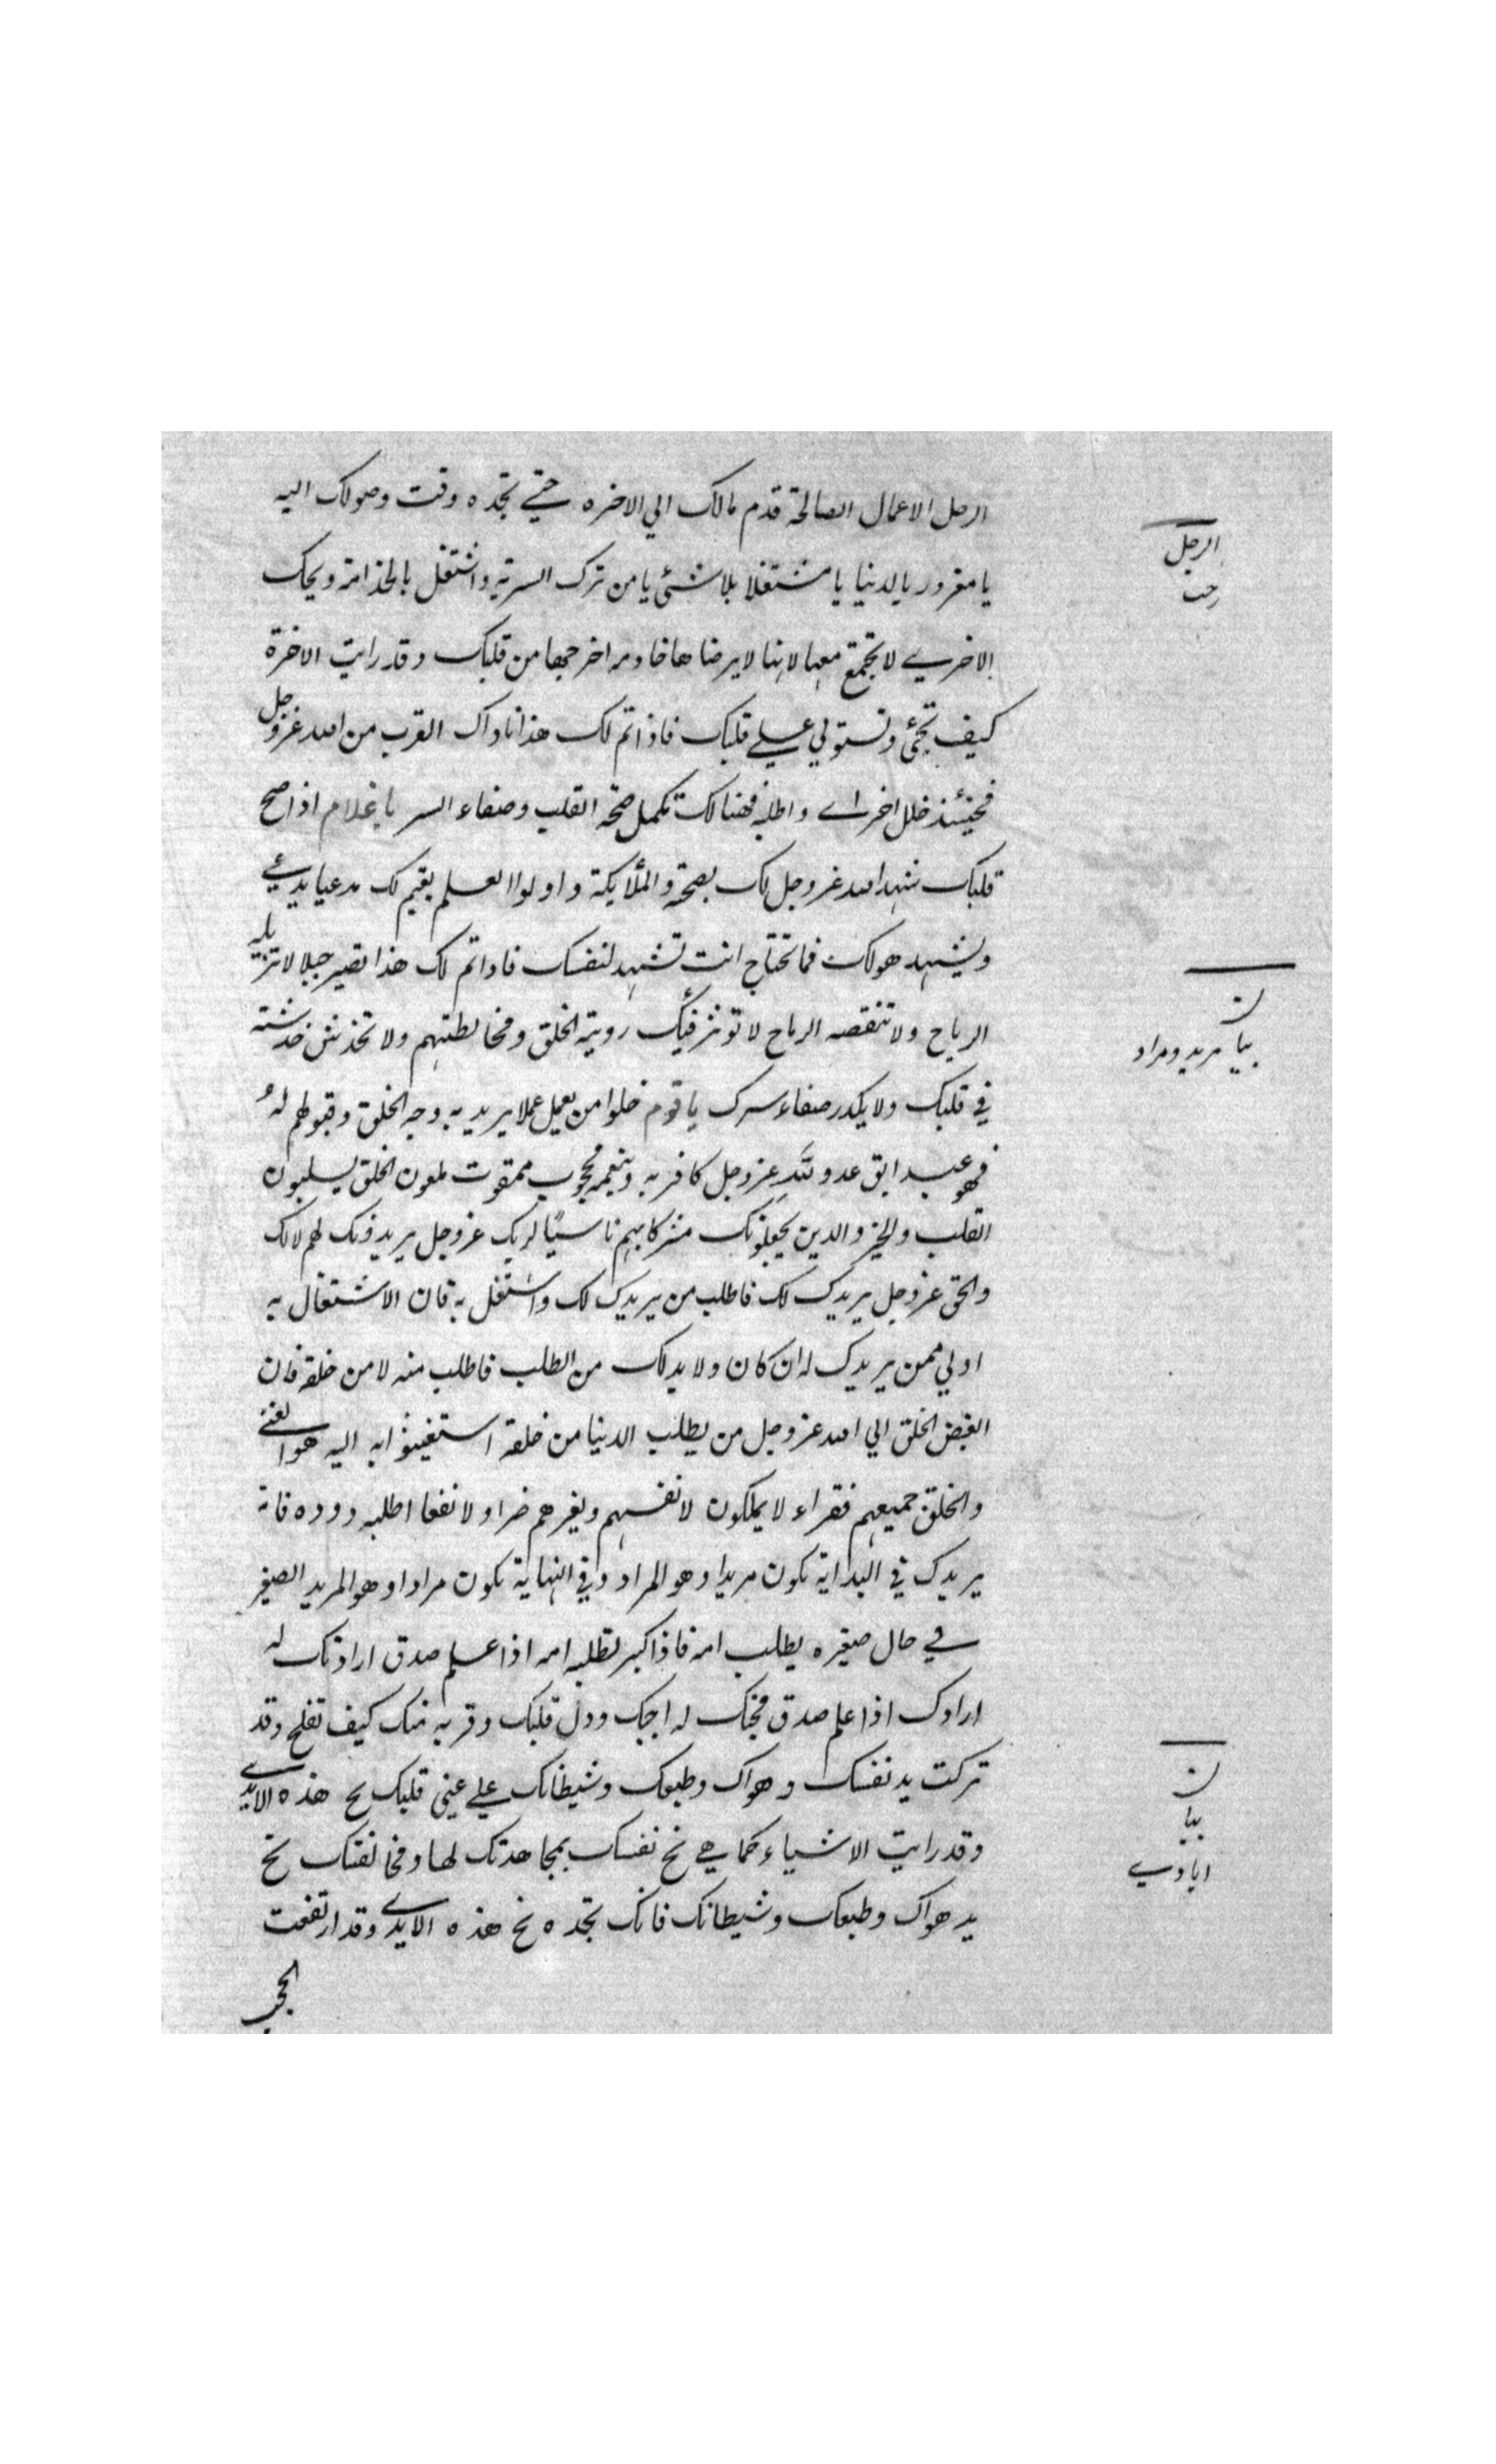 الرحل الاعمال الصالحة قدم مالك الي الاخره حتي تجده وقت وصولك اليه
يا مغرور بالدنيا يا مشتغلا بلا شئ يا من ترك السرية واشتغل بالخدامة ويحك
الاخري لا تجتمع معها لانها لا يرضاها خادمه اخرجها من قلبك وقد رايت الاخرة
كيف تجئ وتستولي علي قلبك فاذا تم لك هذا ناداك القرب من الله عز وجل
فحينئذ خلل اخراي واطلبه فهنالك تكمل صحة القلب وصفاء السر يا غلام اذا صح
قلبك شهد الله عز وجل لك بصحة والملايكة و اولوا العلم يقيم لك مدعيا يدعي
ويشهد هو لك فما تحتاج انت تشهد لنفسك فاذا تم لك هذا تصير جبلا لا تزيله
الرياح ولا تنقصه الرماح لا تؤثر فيك روية الخلق ومخالطتهم ولا تخدش خدشته
في قلبك ولا يكدر صفاء سرك يا قوم خلوا من يعمل عملا يريد به وجه الخلق وقبولهم له
فهو عبد ابق عدو لله عز وجل كافر به وبنعمه محجوب ممقوت ملعون الخلق يسلبون
القلب والخير والدين يجعلونك مشركا بهم ناسيًا لربك عز وجل يريدونك لهم لا لك
والحق عز وجل يريدك لك فاطلب من يريدك لك واشتغل به فان الاشتغال به
اولي ممن يريدك له ان كان ولا بد لك من الطلب فاطلب منه لا من خلقه فان
ابغض الخلق الي الله عز وجل من يطلب الدنيا من خلقه استغيثوا به اليه هو الغني
والخلق جميعهم فقراء لا يملكون لانفسهم ولغيرهم ضرا ولا نفعا اطلبه ووده فانه
يريدك في البداية تكون مريدا وهو المراد وفي النهاية تكون مرادا وهو المريد الصغير
في حال صغره يطلب امه فاذا كبر تطلبه امه اذا علم صدق ارادتك له
ارادك اذا علم صدق محبتك له احبك ودل قلبك وقربه منك كيف تفلح وقد
تركت يد نفسك و هواك وطبعك وشيطانك علي عيني قلبك نح هذه الايدي
وقد رايت الاشياء كما هي نح نفسك بمجاهدتك لها ومخالفتك نح
يد هواك وطبعك وشيطانك فانك تجده نح هذه الايدي وقد ارتفعت
الحجب
الرحل
رخت
ن
بيا مريد ومراد
ن
بيا